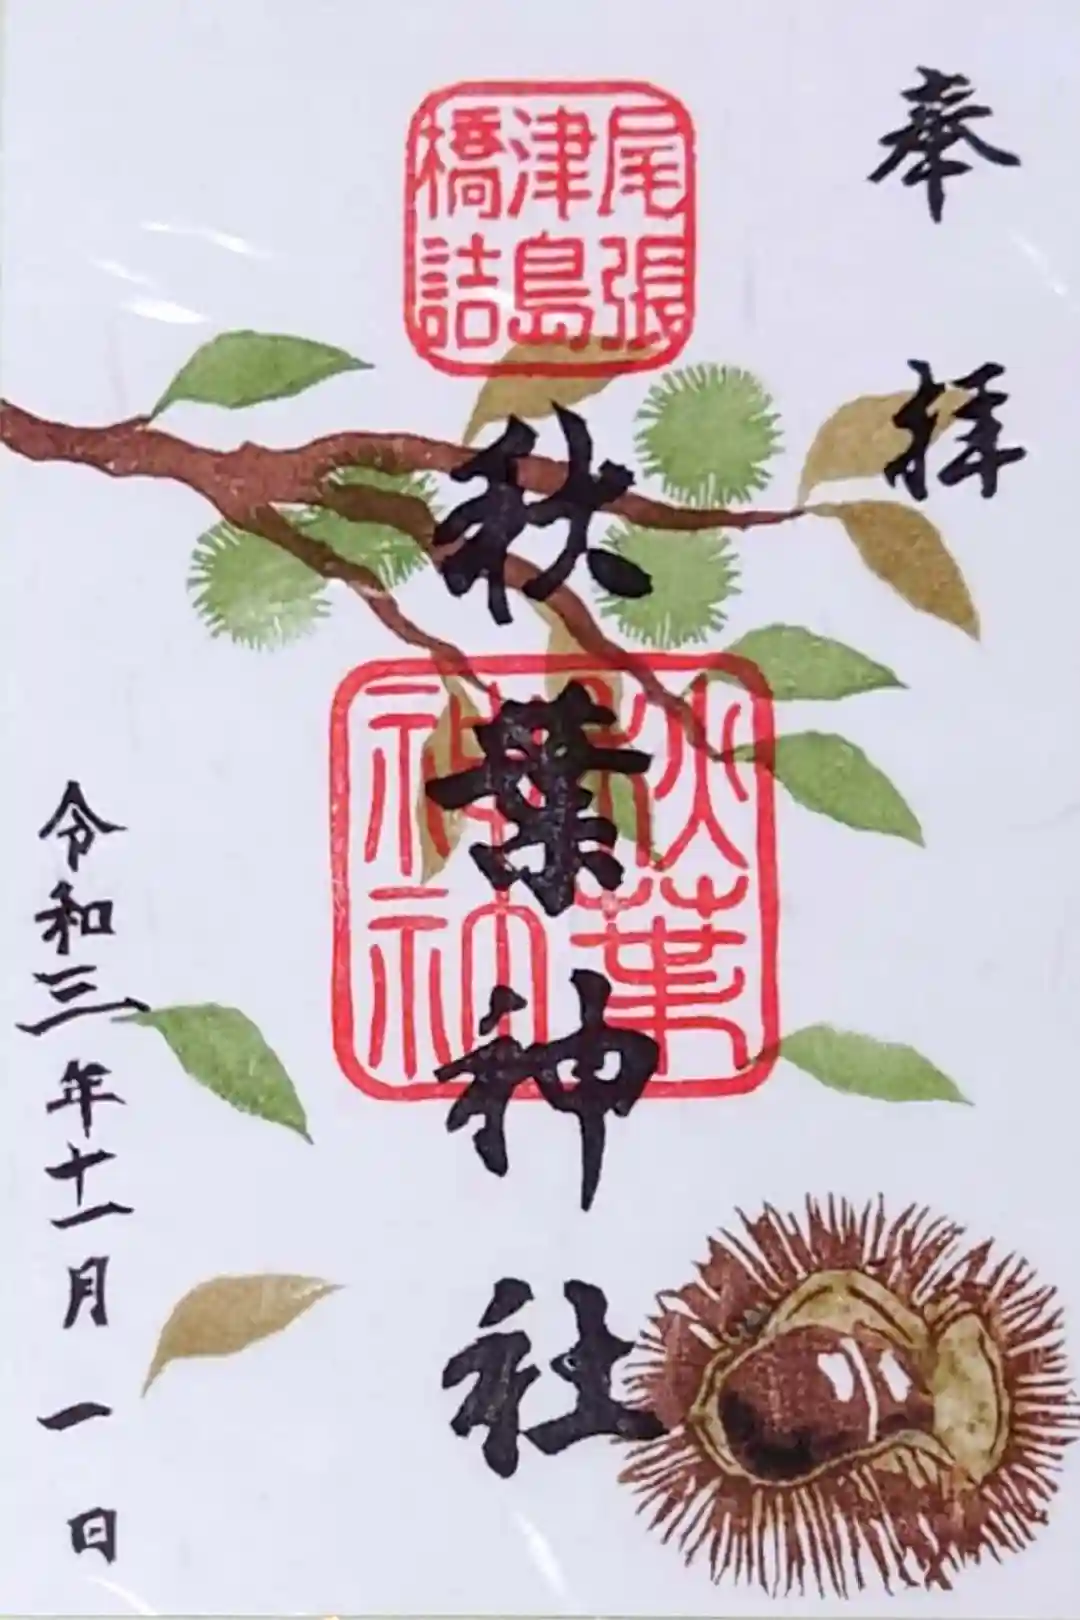 奉拝
尾張
津島
橋詰
秋葉神社
秋葉
神社
令和三年十一月一日